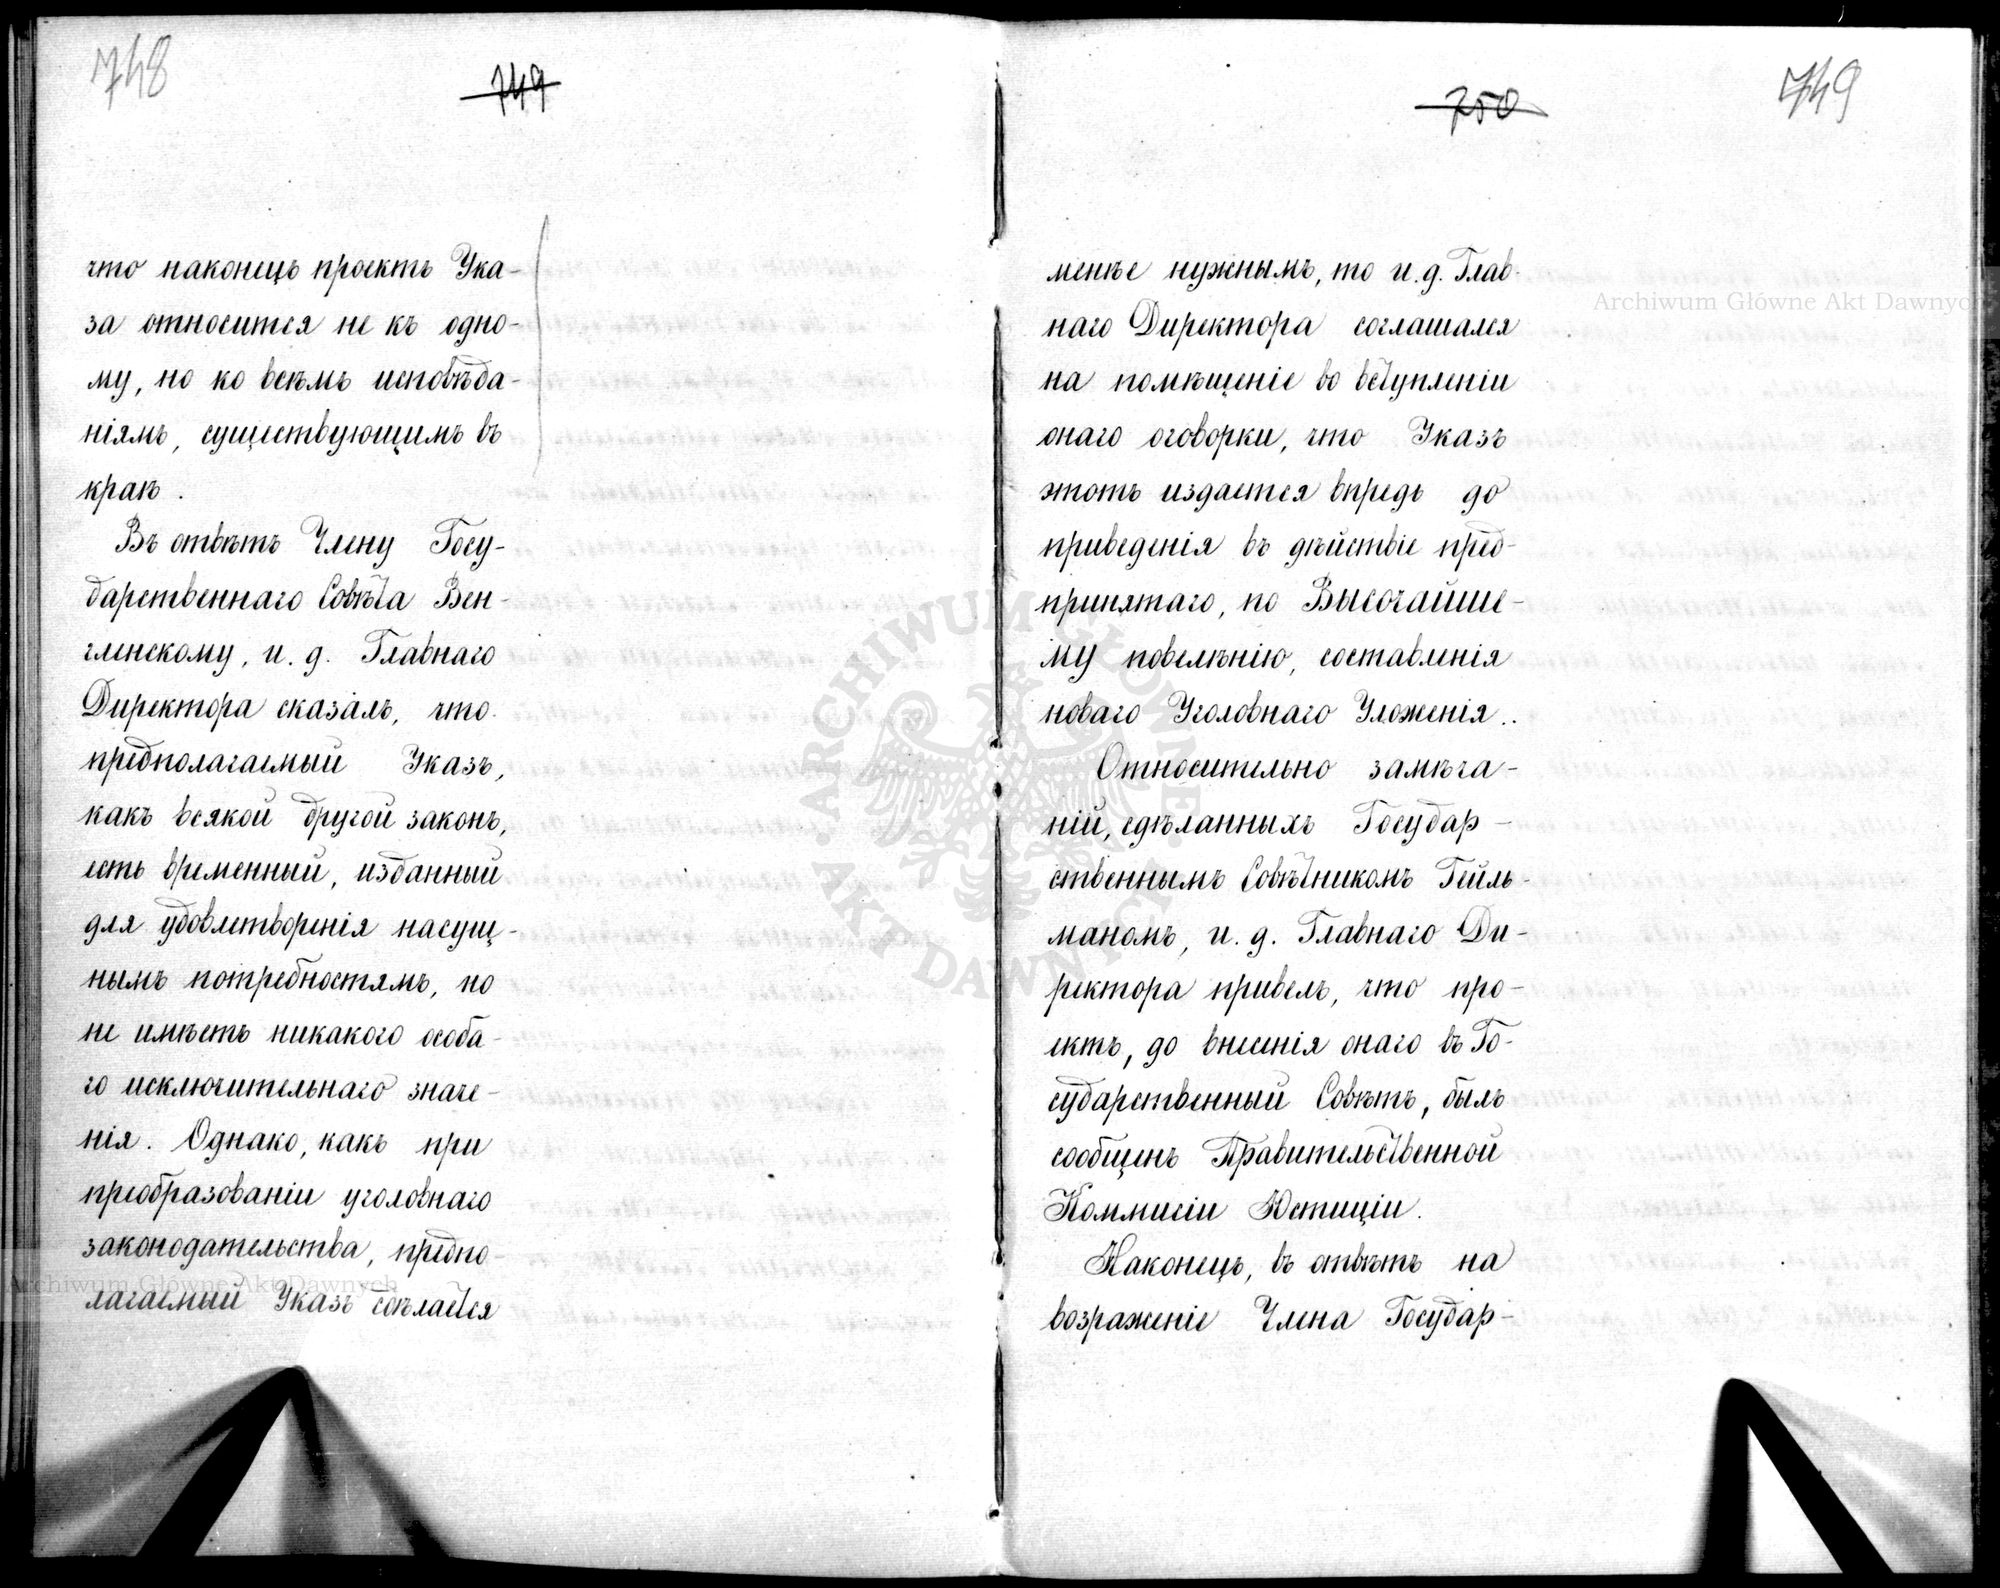 748
749
что наконецъ проектъ Ука-
за относится не къ одно-
му, но ко всѣмъ исповѣда-
ніямъ, существующимъ въ
краѣ.
Въ отвѣтъ Члену Госу-
дарственнаго Совѣта Вен-
гленскому, и. д. Главнаго
Директора сказалъ, что
предполагаемый Указъ,
какъ всякой другой законъ,
есть временный, изданный
для удовлетворенія насущ-
нымъ потребностямъ, но
не имѣетъ никакого особа-
го исключительнаго значе-
нія. Однако, какъ при
преобразованіи уголовнаго
законодательства, предпо-
лагаемый Указъ сдѣлается
750
749
менѣе нужнымъ, то и. д. Глав-
наго Директора соглашался
на помѣщеніе во вступленіи
онаго оговорки, что Указъ
этотъ издается впредь до
приведенія въ дѣйствіе пред-
принятаго, по Высочайше-
му повелѣнію, составленія
новаго Уголовнаго Уложенія..
Относительно замѣча-
ній, сдѣланныхъ Государ-
ственнымъ Совѣтникомъ Гейль-
маномъ, и. д. Главнаго Ди-
ректора привелъ, что про-
ектъ, до внесенія онаго въ Го-
сударственный Совѣтъ, былъ
сообщенъ Правительственной
Коммисіи Юстиціи.
Наконецъ, въ отвѣтъ на
возраженіе Члена Государ-
Archiwum Główne Akt Dawnych
Archiwum Główne Akt Dawnych
ARCHIWUM GŁÓWNE
AKT DAWNYCH